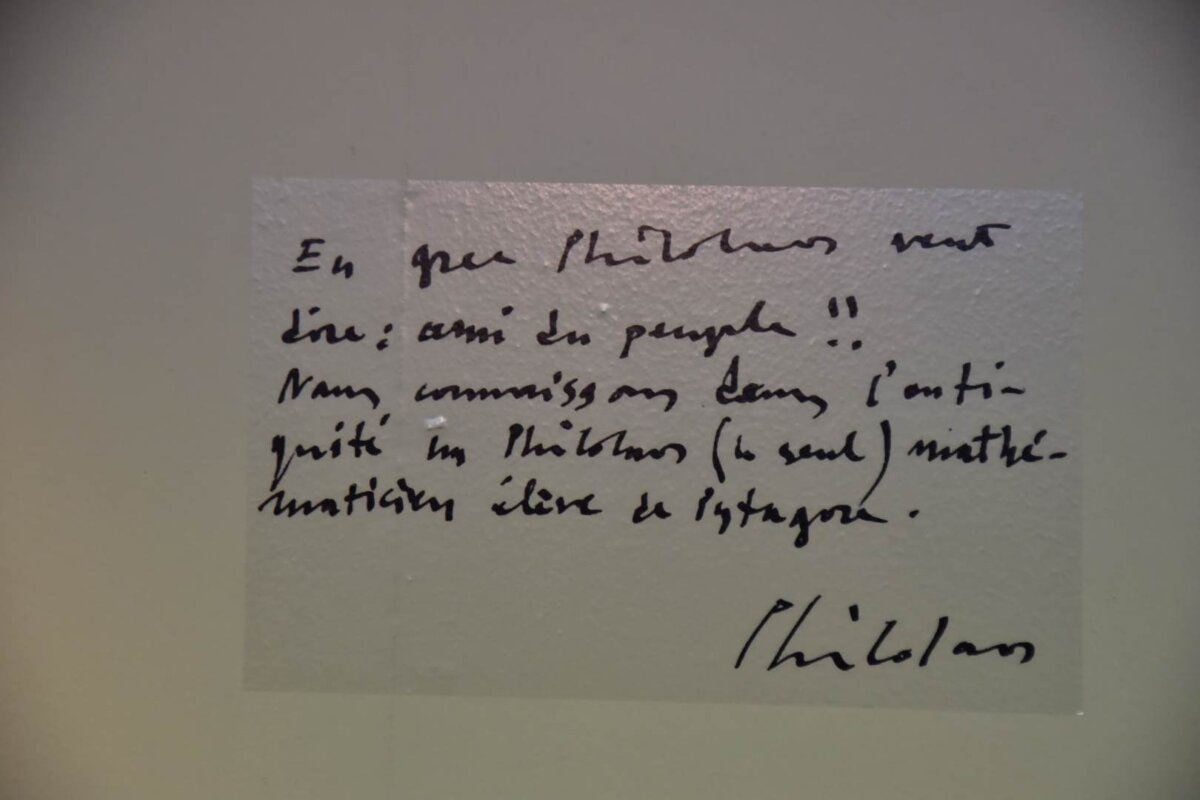 En grec Philolaos veut
dire : ami du peuple !!
Nous connaissons dans l'anti-
quité un Philolaos (le seul) mathé-
maticien élève de Pytagore.
Philolaos